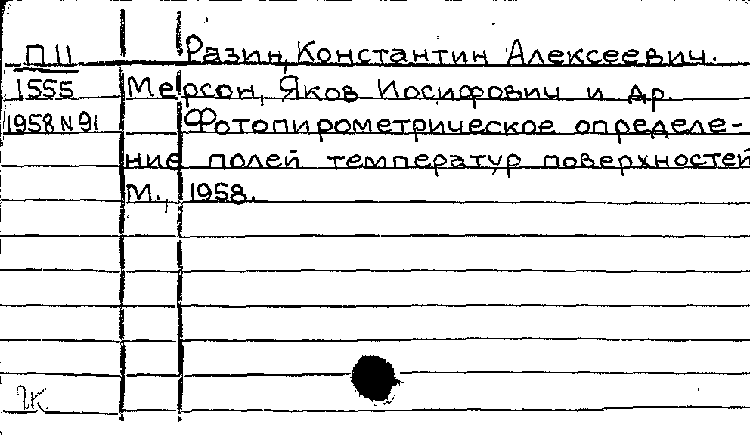 П11 Разин, Константин Алексеевич.
1555 Мерсон, Яков Иосифович и др.
1958 N 91 Фотопирометрическое определе-
ние полей температур поверхностей
М., 1958.